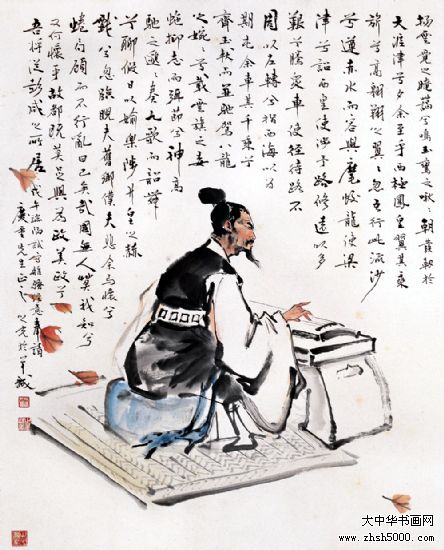 揚雲霓之晻藹兮鳴玉鸞之啾啾朝發軔於
天涯津兮夕余至乎西極鳳皇翼其承
旂兮高翱翔之翼翼忽吾行此流沙
兮遵赤水而容與麾蛟龍使梁
津兮詔西皇使涉予路修遠以多
艱兮騰衆車使徑待路不
周以左轉兮指西海以為
期屯余車其千乘兮
齊玉軑而並馳駕八龍
之婉々兮載雲旗之委
蛇抑志而弭節兮神高
馳之邈々奏九歌而韶舞
兮聊假日以媮樂陟升皇之赫
戲兮忽臨睨夫舊鄉僕夫悲余馬懷兮
蜷局顧而不行亂曰已矣哉國無人莫我知兮
又何懷乎故都既莫足與為政美政兮
吾將從彭咸之所居 戊午
先生正之 之光於羊城
大中华书画网
www.zhsh5000.com